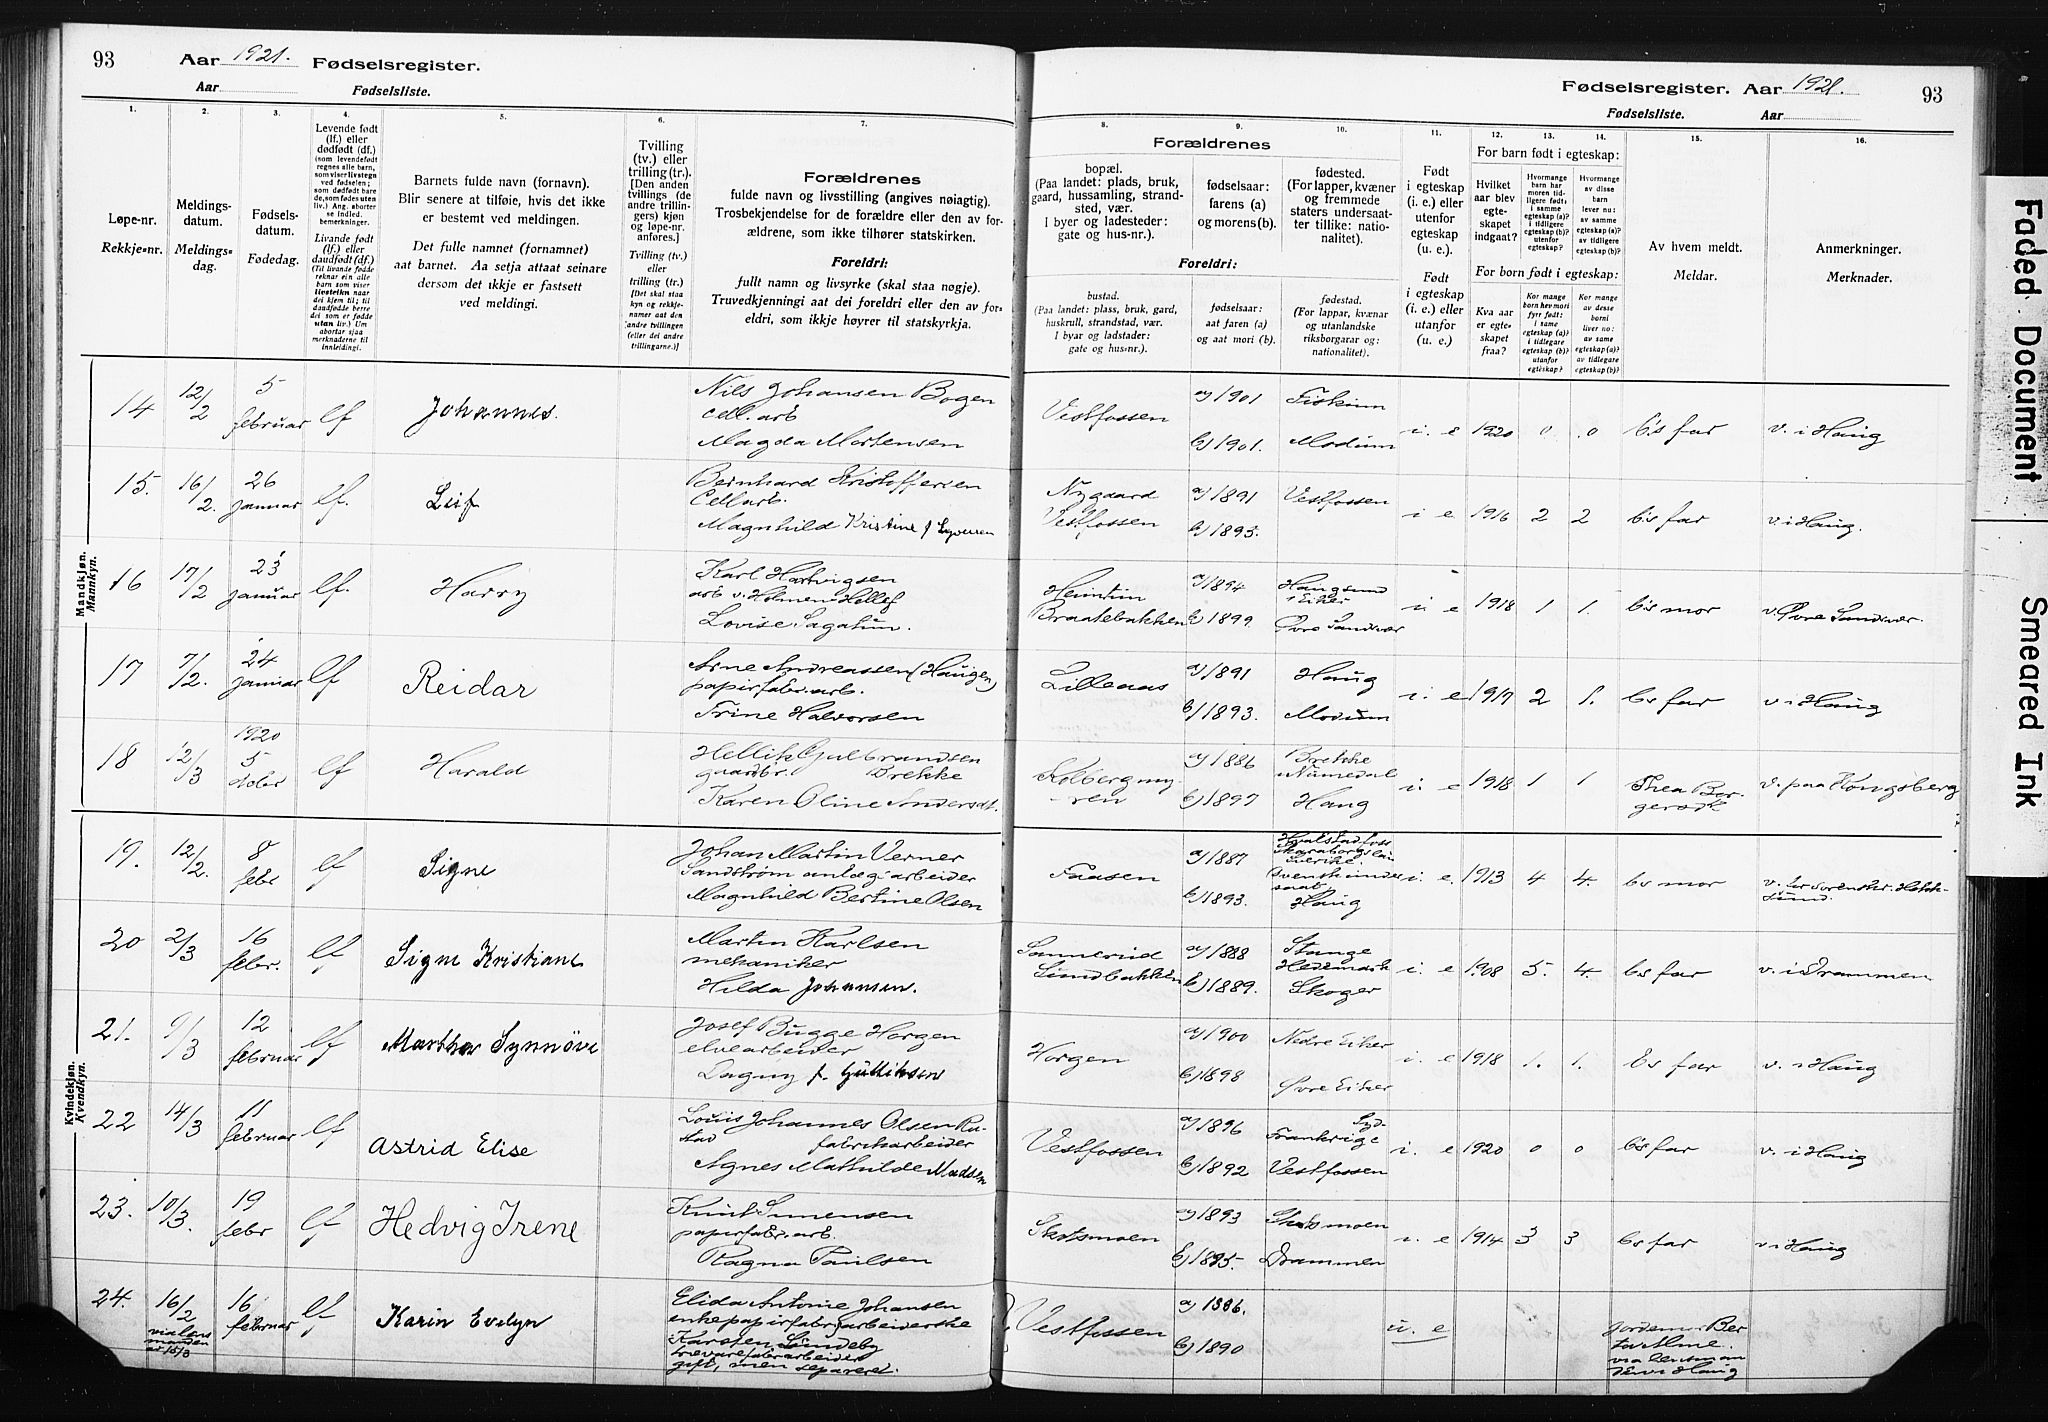 93 Aar 1921. Fødselsregister.
Aar Fødselsliste.
Fødselsregister. Aar 1921. 93
Fødselsliste. Aar
1. 2. 3. 4. 5. 6. 7. 8. 9. 10. 11. 12. 13. 14. 15. 16.
Løpe-nr.
Rekkje-nr.
Meldings-
datum.
Meldings-
dag.
Fødsels-
datum.
Fødedag.
Levende født
(lf.) eller
dødfødt (df.)
(som levendefødt
regnes alle barn,
som viser livstegn
ved fødselen;
som dødfødt bare
de, som fødes uten
liv.) Ang. aborter
se indled.
bemerkninger.
Livande født
(lf.) eller
daudfødt (df.)
(Til livande fødde
reknar ein alle
barn som viser
livsteikn naar
dei kjem til; til
daudfødde berre
dei som er fødde
utan liv.) Um
abortar sjaa
merknaderne til
innleidingi.
Barnets fulde navn (fornavn).
Blir senere at tilføie, hvis det ikke
er bestemt ved meldingen.
Det fulle namnet (fornamnet)
aat barnet. Aa setja attaat seinare
dersom det ikkje er fastsett
ved meldingi.
Tvilling
(tv.) eller
trilling (tr.).
[Den anden
tvillings (de
andre trillin-
gers) kjøn
og løpe-nr.
anføres.]
Tvilling (tv.)
eller
trilling (tr.)
[Det skal staa
kyn og rekkje-
numer aat den
andre tvillingen
(eller dei andre
trillingarne.)]
Forældrenes
fulde navn og livsstilling (angives nøiagtig).
Trosbekjendelse for de forældre eller den av for-
ældrene, som ikke tilhører statskirken.
Foreldri:
fullt namn og livsyrke (skal staa nøgje).
Truvedkjenningi aat dei foreldri eller den av for-
eldri, som ikkje høyrer til statskyrkja.
Forældrenes
bopæl.
(Paa landet: plads, bruk,
gaard, hussamling, strand-
sted, vær.
I byer og ladesteder:
gate og hus-nr.).
fødselsaar:
farens (a)
og morens (b).
fødested.
(For lapper, kvæner
og fremmede
staters undersaat-
ter tillike: natio-
nalitet).
Foreldri:
bustad.
(Paa landet: plass, bruk, gard,
huskrull, strandstad, vær.
I byar og ladstader:
gate og hus-nr.).
fødselsaar:
aat faren (a)
og aat mori (b).
fødestad.
(For lappar, kvænar
og utanlandske
riksborgarar og:
nationalitet).
Født
i egteskap
(i. e.) eller
utenfor
egteskap
(u. e.).
Født
i egteskap
(i. e.) eller
utanfor
(u. e.).
For barn født i egteskap:
Hvilket
aar blev
egte-
skapet
indgaat?
Hvormange
barn har
moren tid-
ligere født:
i samme
egteskap (a)?
i tidligere
egteskap (b)?
utenfor
egteskap?
Hvormange
av disse
barn
lever nu:
av samme
egteskap (a)?
av tidligere
egteskap (b)?
For born født i egteskap:
Kva aar
er egte-
skapet
fraa?
Kor mange
born hev mori
fyrr født:
i same
egteskap (a)?
i tidlegare
egteskap (b)?
utanfor
egteskap?
Kor mange
av desse
borni
liver no:
av same
egteskap (a)?
av tidlegare
egteskap (b)?
Av hvem meldt.
Meldar.
Anmerkninger.
Merknader.
Mandkjøn.
Mannkyn.
14 12/2 5 februar lf Johannes. Nils Johansen Bogen
cell. arb
Magda Mortensen
Vestfossen a) 1901 Fiskum
b) 1901. Modum i. e 1920 0 0 b's far v. i Haug
15. 16/2. 26 januar lf. Leif Bernhard Kristoffersen
Cell arb.
Magnhild Kristine f Syversen
Nygaard
Vestfossen a) 1891 Vestfossen
b) 1893. i e 1916 2 2 b's far v. i Haug.
16 17/2 23 januar lf. Harry Karl Hartvigsen
arb v. Holmen Hellef
Lovise Sagatun.
Braatebakken a) 1894 Haugsund
i Eiker
b) 1899. Øvre Sandsvær i e 1918 1 1. b's mor v. Øvre Sandsvær.
17 7/2. 24 januar lf Reidar Arne Andreassen (Haugen)
papirfabr. arb.
Trine Halvorsen
Lilleaas a) 1891 Haug
b) 1893. Modum i. e 1917 2 1. b's far v i Haug
18 12/3 1920 5 lf Harald Hellik Gulbrandsen
gaardbr. Brekke
Karen Oline
Kolbergmy-
ren a) 1886 Brekke
Numedal
b) 1897 Haug i. e 1918 1 1 Thea Ber-
v. paa Kongsberg
19. 12/2. 8 febr lf Signe Johan Martin Verner
Sandstrøm anlægsarbeider
Magnhild Bertine Olsen
Faasen a) 1887
Skaraborgslän
Sverike.
svensk under
saat
b) 1893. Haug i. e. 1913 4 4. b's mor
20 2/3 16 febr. lf Signe Kristiane Martin Karlsen
mekaniker
Hilda Johansen.
Sannerud
Lundbakken a) 1888 Stange
Hedemark
b) 1889. Skoger i. e 1908 5. 4. b's far v. i Drammen
21. 9/3 12 februar lf Martha Synnöve Josef Bugge Horgen
elvearbeider
Dagny f. Gulliksen
Horgen a) 1900 Nedre Eiker
b) 1898 Øvre Eiker i. e 1918 1. 1. b's far v. i Haug
22 14/3 11 februar lf Astrid Elise Louis Johannes Olsen Ru-
stad fabrikarbeider
Agnes Mathilde Madsen
Vestfossen a) 1896 Syd-
Frankrige
b) 1892 Vestfossen i. e 1920 0 0 b's far v. i Haug
23. 10/3. 19 febr lf Hedvig Irene Knut Simensen
papirfabr. arb.
Ragna Paulsen
Skotsmoen a) 1893 Skotsmoen
b) 1895. Drammen i. e 1914 3 3 b's far v i Haug
24. 16/2 via lens
manden 16 februar lf Karin Evelyn Elida Antonie Johansen
enke papirfabrikarbeiderske
Karsten Lundeby
trævarefabr arbeider
gift, men separeret.
Vestfossen a) 1886.
b) 1890 u. e Jordemor Ber-
ta Alme.
Kvindekjøn.
Kvendkyn.
Faded Document
Smeared Ink